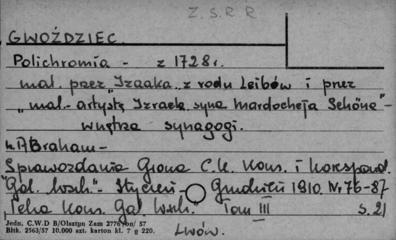 Z.S.R.R
GWOŹDZIEC
Polichromia - z 1728 r.
mal. przez „Izaaka" z rodu Leibów i przez
„mal.- artystę Izraela syna Mardocheja"-
wnętrze synagogi.
Abraham-
Sprawozdania Grona C.K. Kons. i Korespond.
"Gal. Wsch."- Styczeń - Grudzień 1910. Nr 76-87
Teka Kons. Gal Wsch. Tom III s. 21
Jedn. C.W.D B/Olsztyn Zam 2776 57
Bltk. 2563/57 10.000 szt. karton kl. 7 g 220.
Lwów.